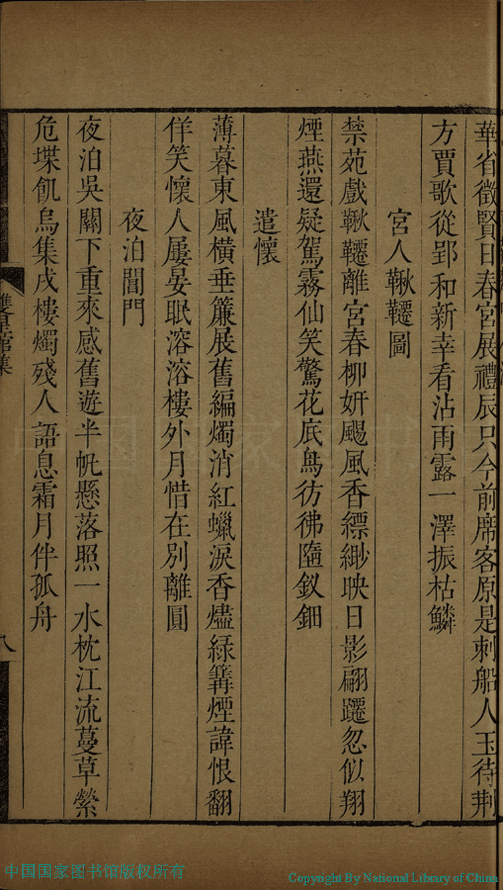 華省徵賢日春宮展禮辰只今前席客原是刺船人玉待荆
方賈歌從郢和新幸看沾雨露一澤振枯鱗
宮人鞦韆圖
禁苑戲鞦韆離宮春柳妍颺風香縹緲映日影翩躚忽似翔
煙燕還疑駕霧仙笑驚花底鳥彷彿墮釵鈿
遣懷
薄暮東風橫垂簾展舊編燭消紅蠟淚香燼綠篝煙諱恨翻
佯笑懷人屢晏眠溶溶樓外月惜在別離圓
夜泊閶門
夜泊吳關下重來感舊遊半帆懸落照一水枕江流蔓草縈
危堞飢烏集戍樓燭殘人語息霜月伴孤舟
集
八
中国国家图书馆版权所有
Copyright By National Library of China